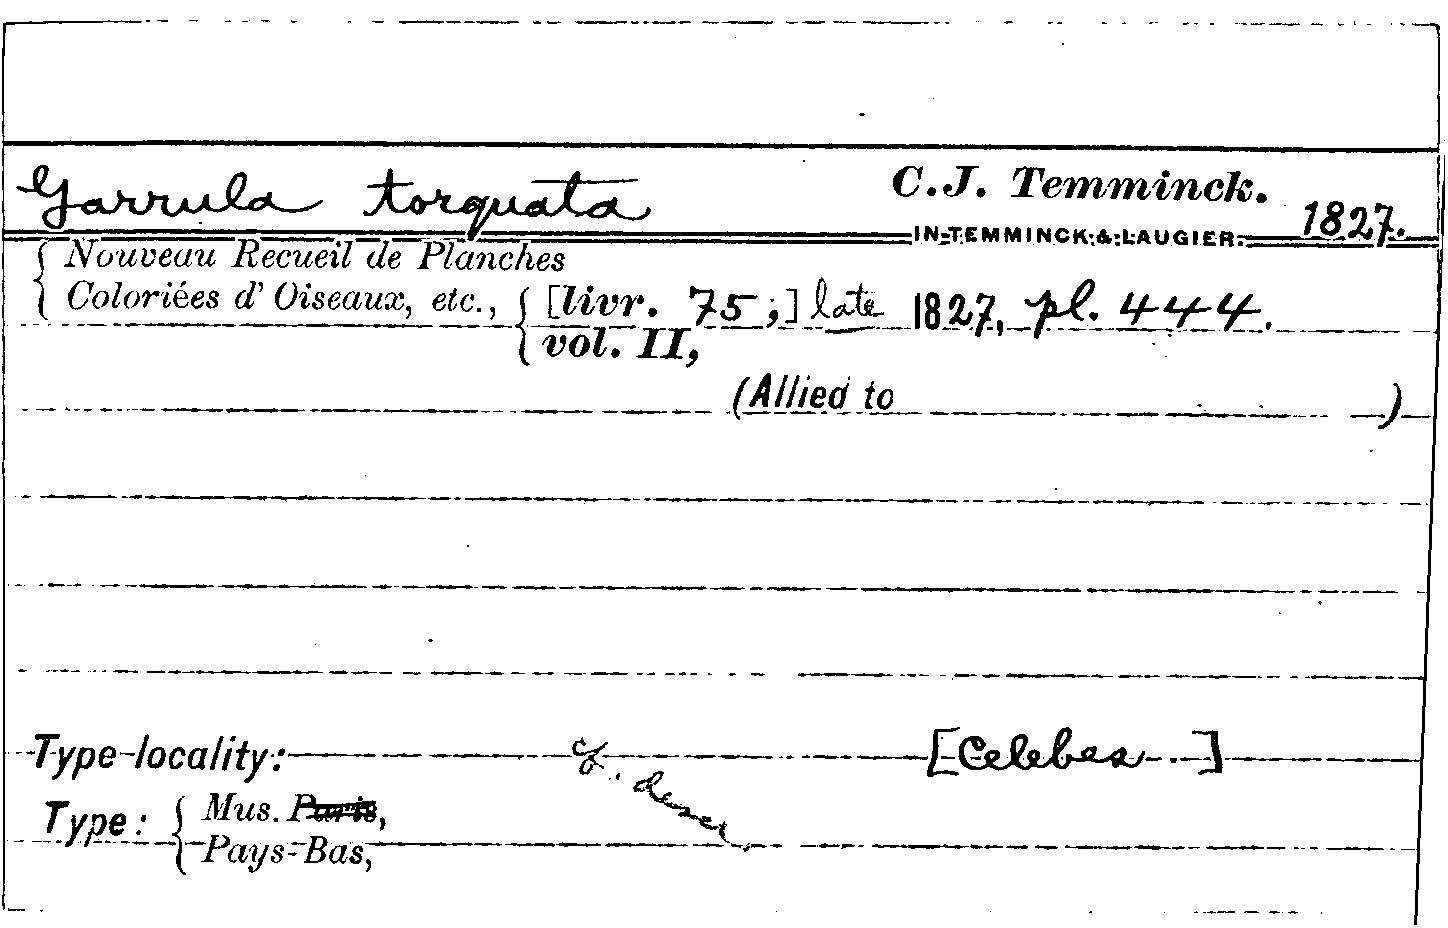 Garrula torquata C.J. Temminck.
IN TEMMINCK & LAUGIER. 1827.
Nouveau Recueil de Planches
Coloriées d' Oiseaux, etc., [livr. 75;] late 1827, pl. 444.
vol. II,
(Allied to )
Type-locality: cf. descr. [Celebes..]
Type: Mus. Paris,
Pays-Bas,